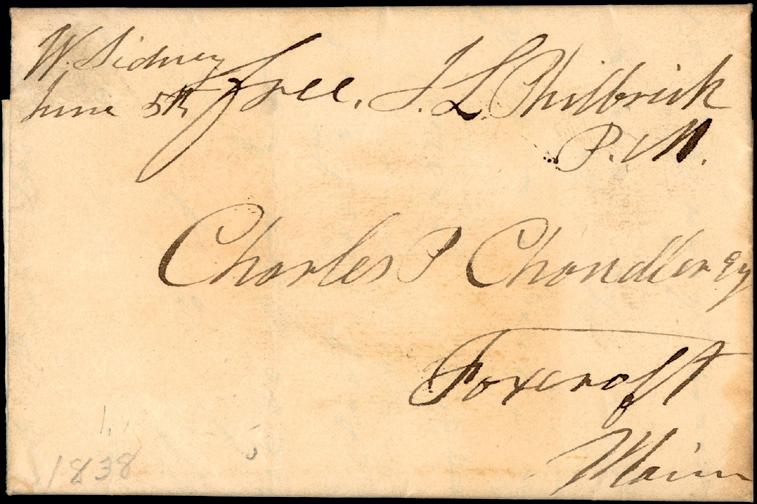 W. Sidney
June 5th
free. J. L. Philbrick
P. M.
Charles P Chandler Esq
Foxcroft
Maine
1838